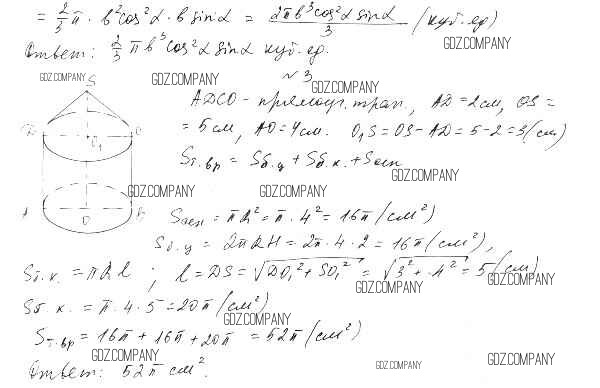 = 2/3 π · b² cos² α · b sin α = 2πb³cos²α sinα / 3 (куб. ед)
Ответ: 2/3 πb³cos²α sinα куб. ед.
GDZ.COMPANY
GDZ.COMPANY GDZ.COMPANY S № 3 GDZ.COMPANY
ADCO - прямоуг. трап, AD = 2 см, OS =
= 5 см, AO = 4 см. O₁S = OS - AD = 5 - 2 = 3 (см)
O₁
Sт.вр = Sб.ц + Sб.к. + Sосн
GDZ.COMPANY
GDZ.COMPANY GDZ.COMPANY
O
Sосн = πR² = π · 4² = 16π (см²)
Sб.ц = 2πRH = 2π · 4 · 2 = 16π (см²),
Sб.к. = πRl ; l = DS = √DO₁² + SO₁² = √3² + 4² = 5 (см)
GDZ.COMPANY GDZ.COMPANY
Sб.к. = π · 4 · 5 = 20π (см²)
GDZ.COMPANY
Sт.вр = 16π + 16π + 20π = 52π (см²)
GDZ.COMPANY GDZ.COMPANY GDZ.COMPANY
Ответ: 52π см².